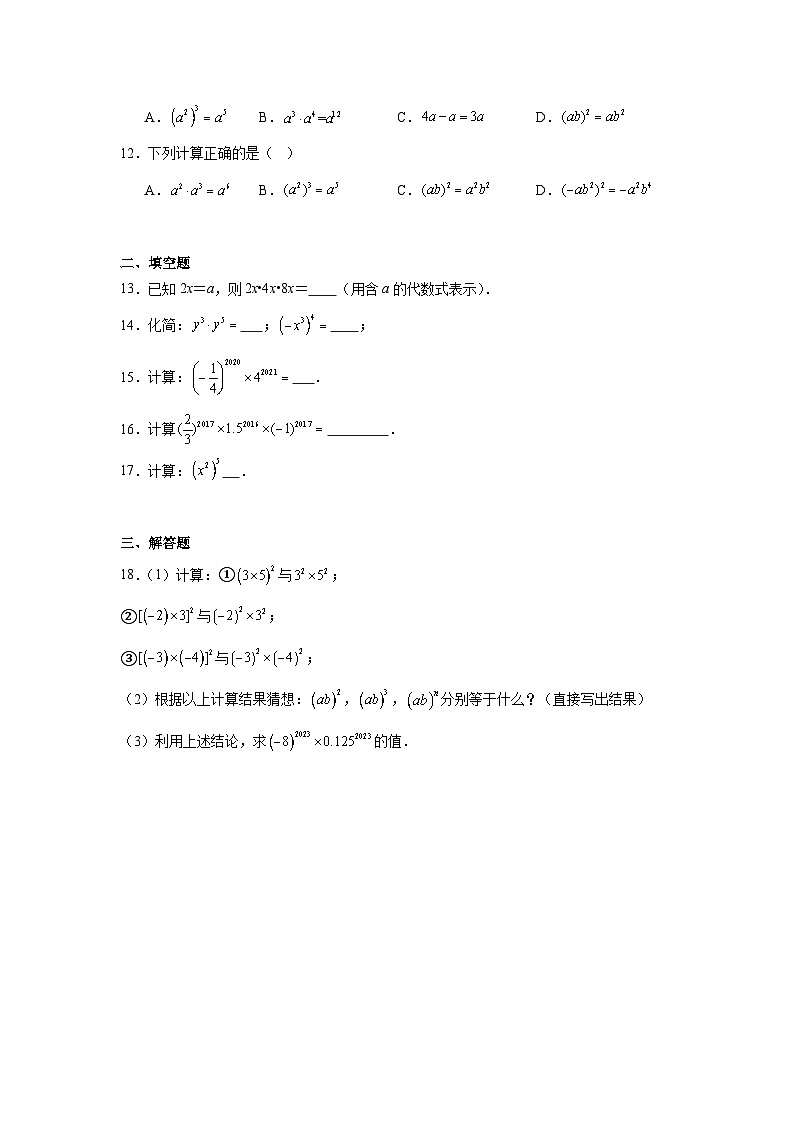 A．(a²)³ = a⁵ B．a³·a⁴=a¹² C．4a − a = 3a D．(ab)² = ab²
12．下列计算正确的是（ ）
A．a²·a³ = a⁶ B．(a²)³ = a⁵ C．(ab)² = a²b² D．(−ab²)² = −a²b⁴
二、填空题
13．已知 2x＝a，则 2x•4x•8x＝____（用含 a 的代数式表示）．
14．化简：y³·y⁵ = ___；(−x³)⁴ = ____；
15．计算：(−1/4)²⁰²⁰ × 4²⁰²¹ = ___．
16．计算(2/3)²⁰¹⁷ ×1.5²⁰¹⁶ ×(−1)²⁰¹⁷ = ________．
17．计算：(x²)⁵__．
三、解答题
18．（1）计算：①(3×5)²与3² × 5²；
②[(−2)×3]²与(−2)² × 3²；
③[(−3)×(−4)]²与(−3)² × (−4)²；
（2）根据以上计算结果猜想：(ab)²，(ab)³，(ab)ⁿ分别等于什么？（直接写出结果）
（3）利用上述结论，求(−8)²⁰²³ ×0.125²⁰²³的值．